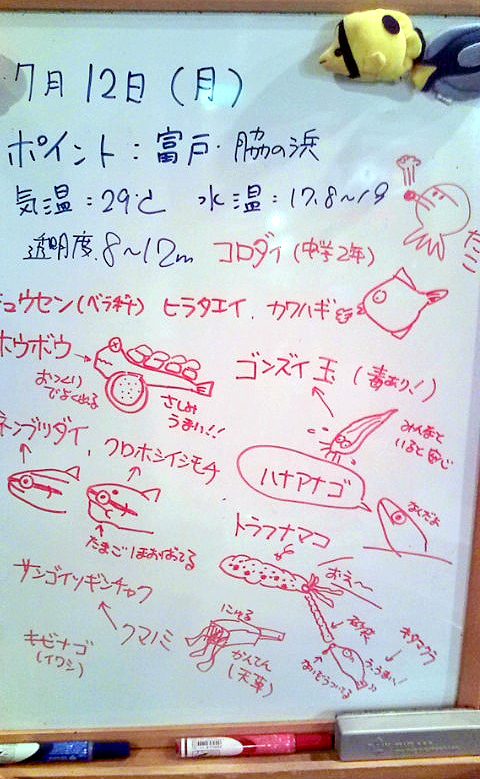 7月12日(月)
ポイント:富戸・脇の浜
気温:29℃ 水温:17.8～19
透明度.8～12m コロダイ(中学2年)
たこ
ュウセン(ベラギチ) ヒラタエイ、カワハギ
ホウボウ
おつくり
でよくでる
さしみ
うまい!!
ゴンズイ玉(毒あり!)
みんなと
いると安心
ネンブツダイ、クロホシイシモチ
たまごほおばってる
ハナアナゴ
なんだよ
トラフナマコ
おえ～
サンゴイソギンチャク
クマノミ
キビナゴ
(イワシ)
にゅる
かんてん
(天草)
砂袋
キタマクラ
うまい!